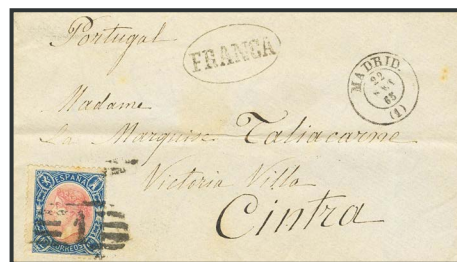 Portugal
FRANCA
MADRID.
22
65
(1)
Madame
La Marquise Taliacarne
Victoria Villa
Cintra
ESPAÑA
CORREOS